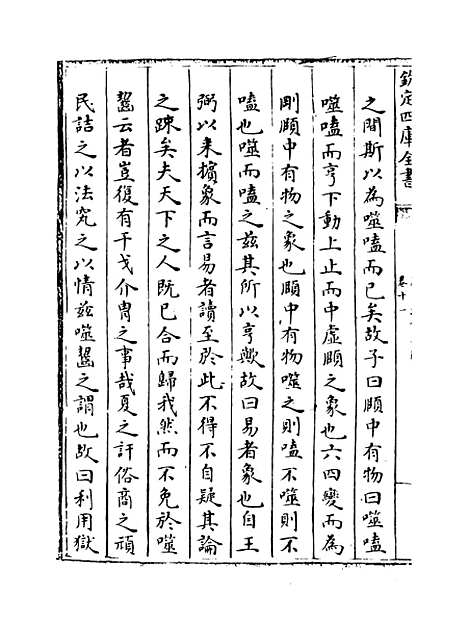 欽定四庫全書
卷十一
之間斯以為噬嗑而已矣故子曰頤中有物曰噬嗑
噬嗑而亨下動上止而中虛頤之象也六四變而為
剛頤中有物之象也頤中有物噬之則嗑不噬則不
嗑也噬而嗑之兹其所以亨歟故曰易者象也自王
弼以來擯象而言易者讀至於此不得不自疑其論
之踈矣夫天下之人既已合而歸我然而不免於噬
齧云者豈復有干戈介胄之事哉夏之訐俗商之頑
民詰之以法究之以情兹噬齧之謂也故曰利用獄